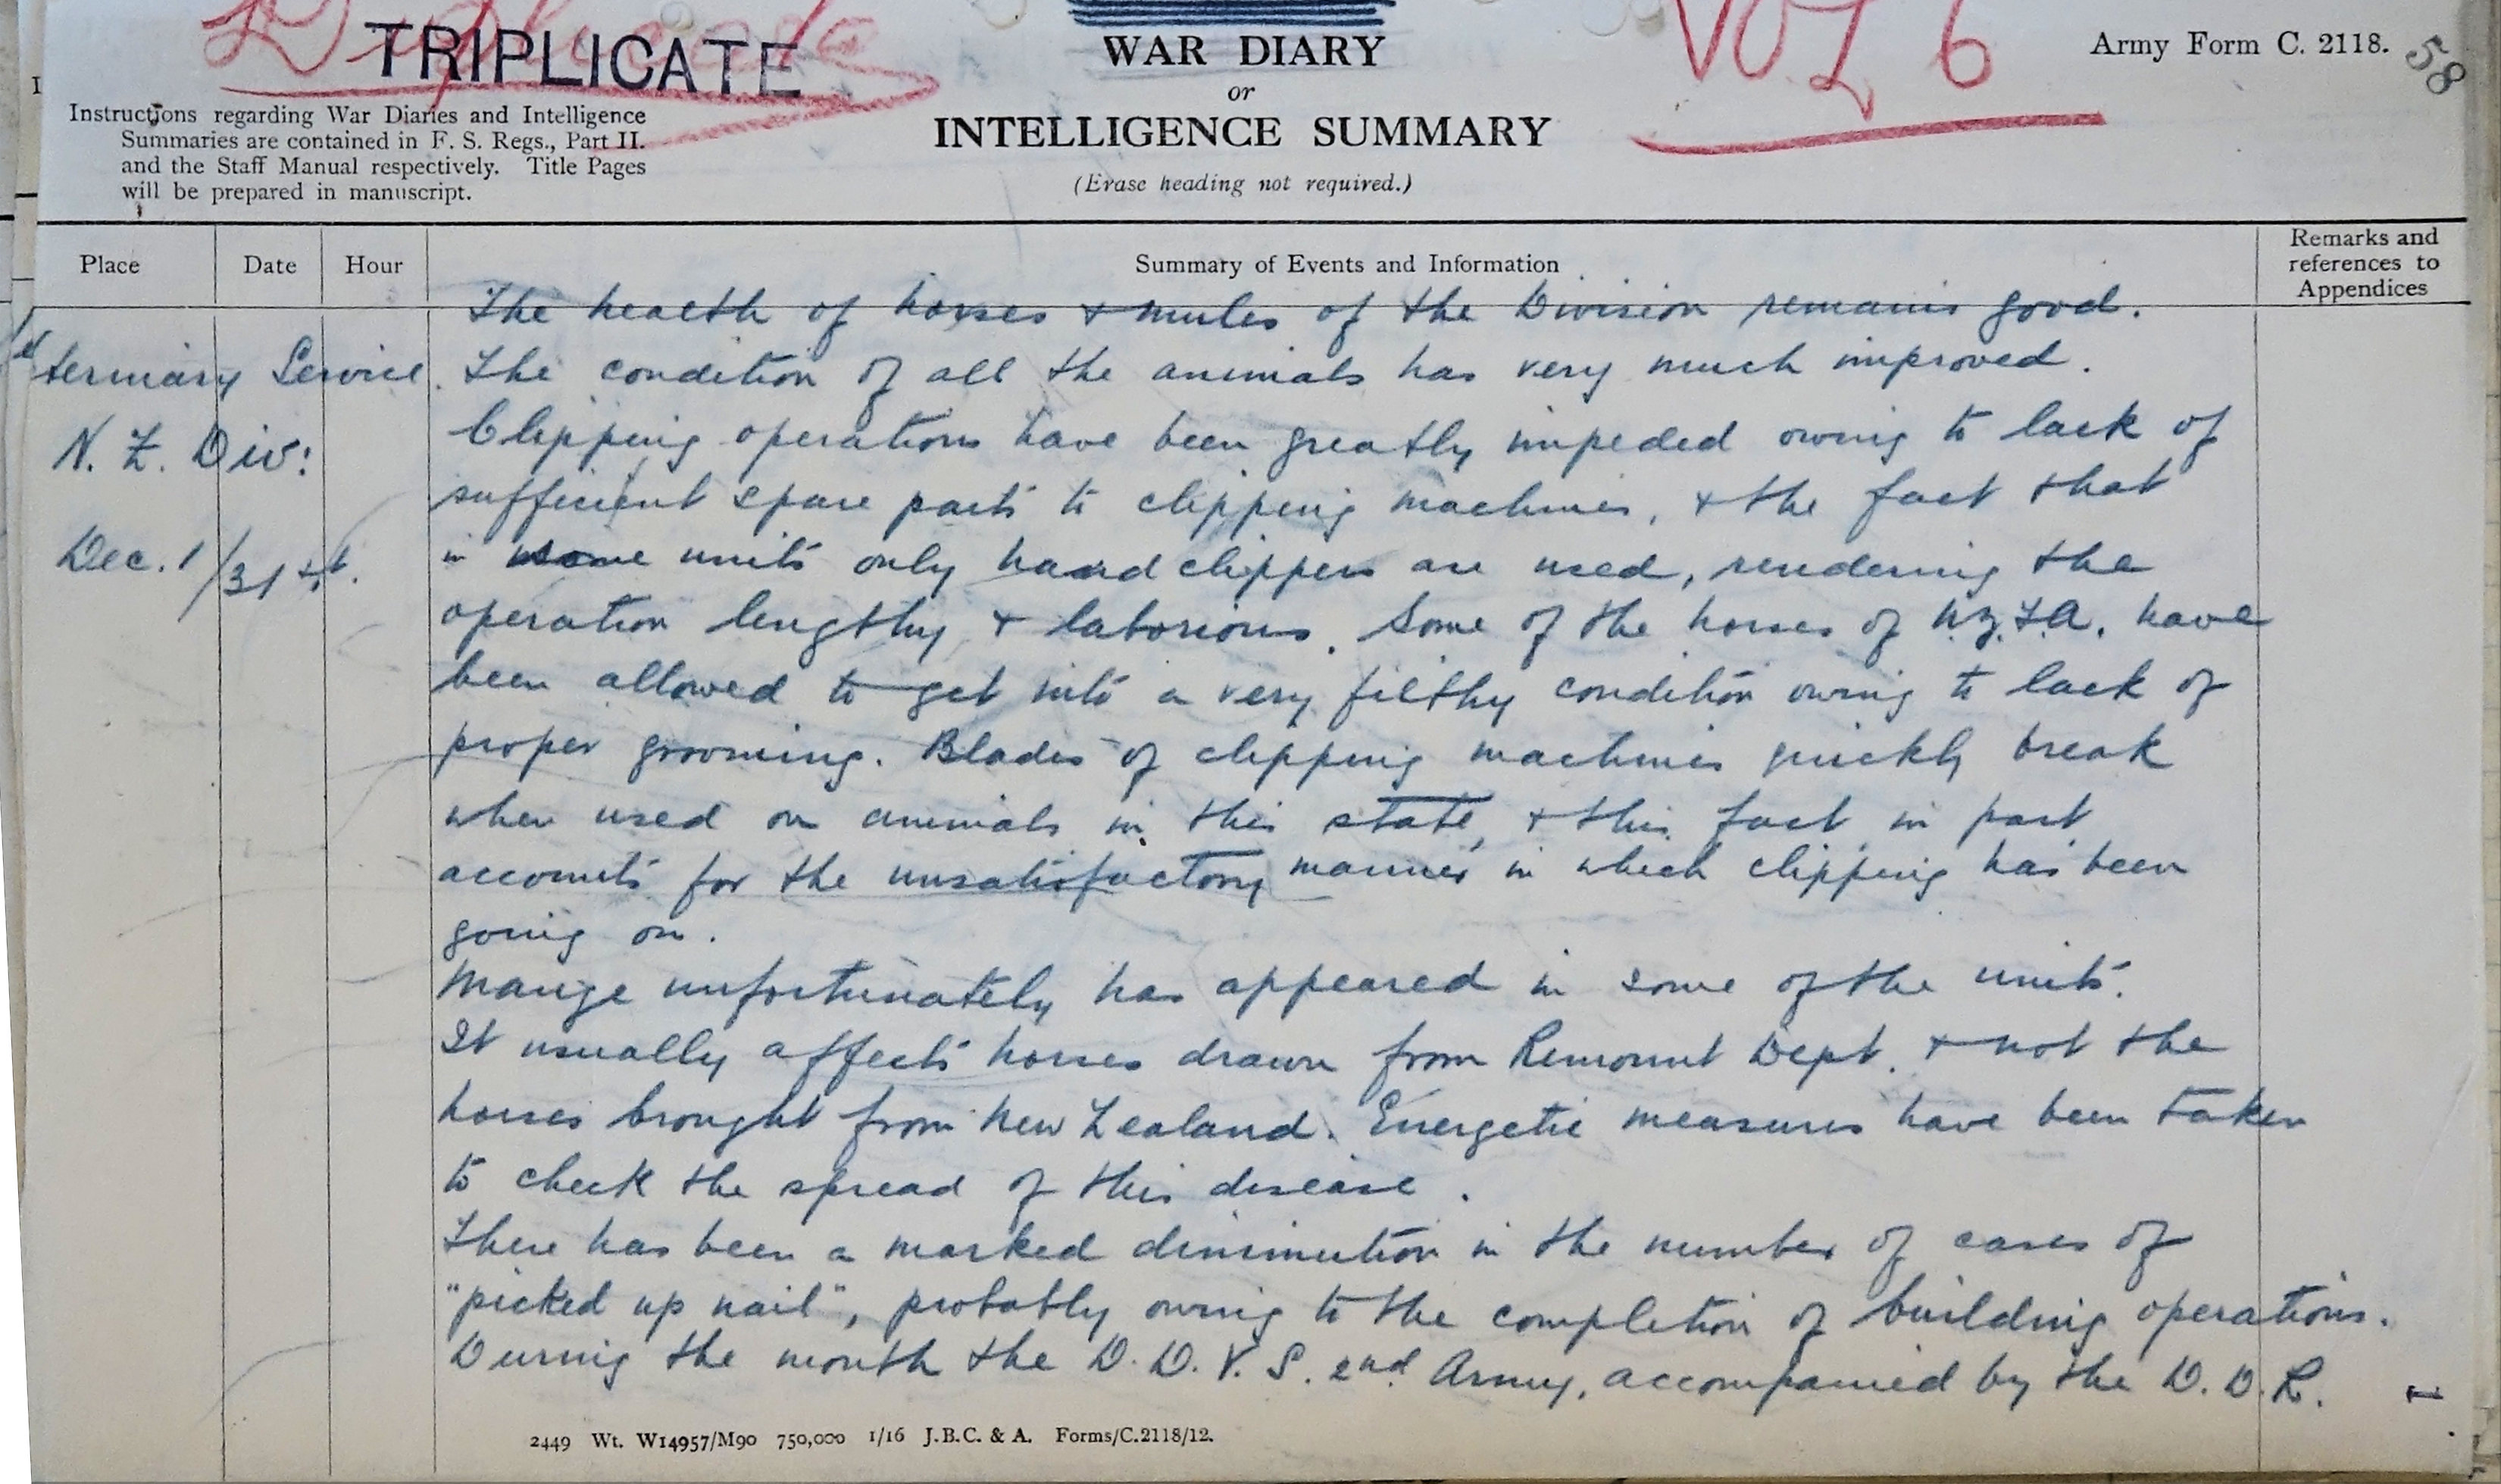 Duplicate
TRIPLICATE
WAR DIARY
or
INTELLIGENCE SUMMARY
(Erase heading not required.)
VOL 6
Army Form C. 2118.
58
Instructions regarding War Diaries and Intelligence
Summaries are contained in F. S. Regs., Part II.
and the Staff Manual respectively. Title Pages
will be prepared in manuscript.
Place
Date
Hour
Summary of Events and Information
Remarks and
references to
Appendices
Veterinary Service.
N. Z. Div:
Dec. 1/31st.
The health of horses & mules of the Division remains good.
The condition of all the animals has very much improved.
Clipping operations have been greatly impeded owing to lack of
sufficient spare parts to clipping machines, & the fact that
in some units only hand clippers are used, rendering the
operation lengthy & laborious. Some of the horses of N.Z.F.A. have
been allowed to get into a very filthy condition owing to lack of
proper grooming. Blades of clipping machines quickly break
when used on animals in this state, & this fact in part
accounts for the unsatisfactory manner in which clipping has been
going on.
Mange unfortunately has appeared in some of the units.
It usually affects horses drawn from Remount Dept. & not the
horses brought from New Zealand. Energetic measures have been taken
to check the spread of this disease.
There has been a marked diminution in the number of cases of
"picked up nail", probably owing to the completion of building operations.
During the month the D. D. V. S. 2nd Army, accompanied by the D. D. R.
2449 Wt. W14957/M90 750,000 1/16 J.B.C. & A. Forms/C.2118/12.